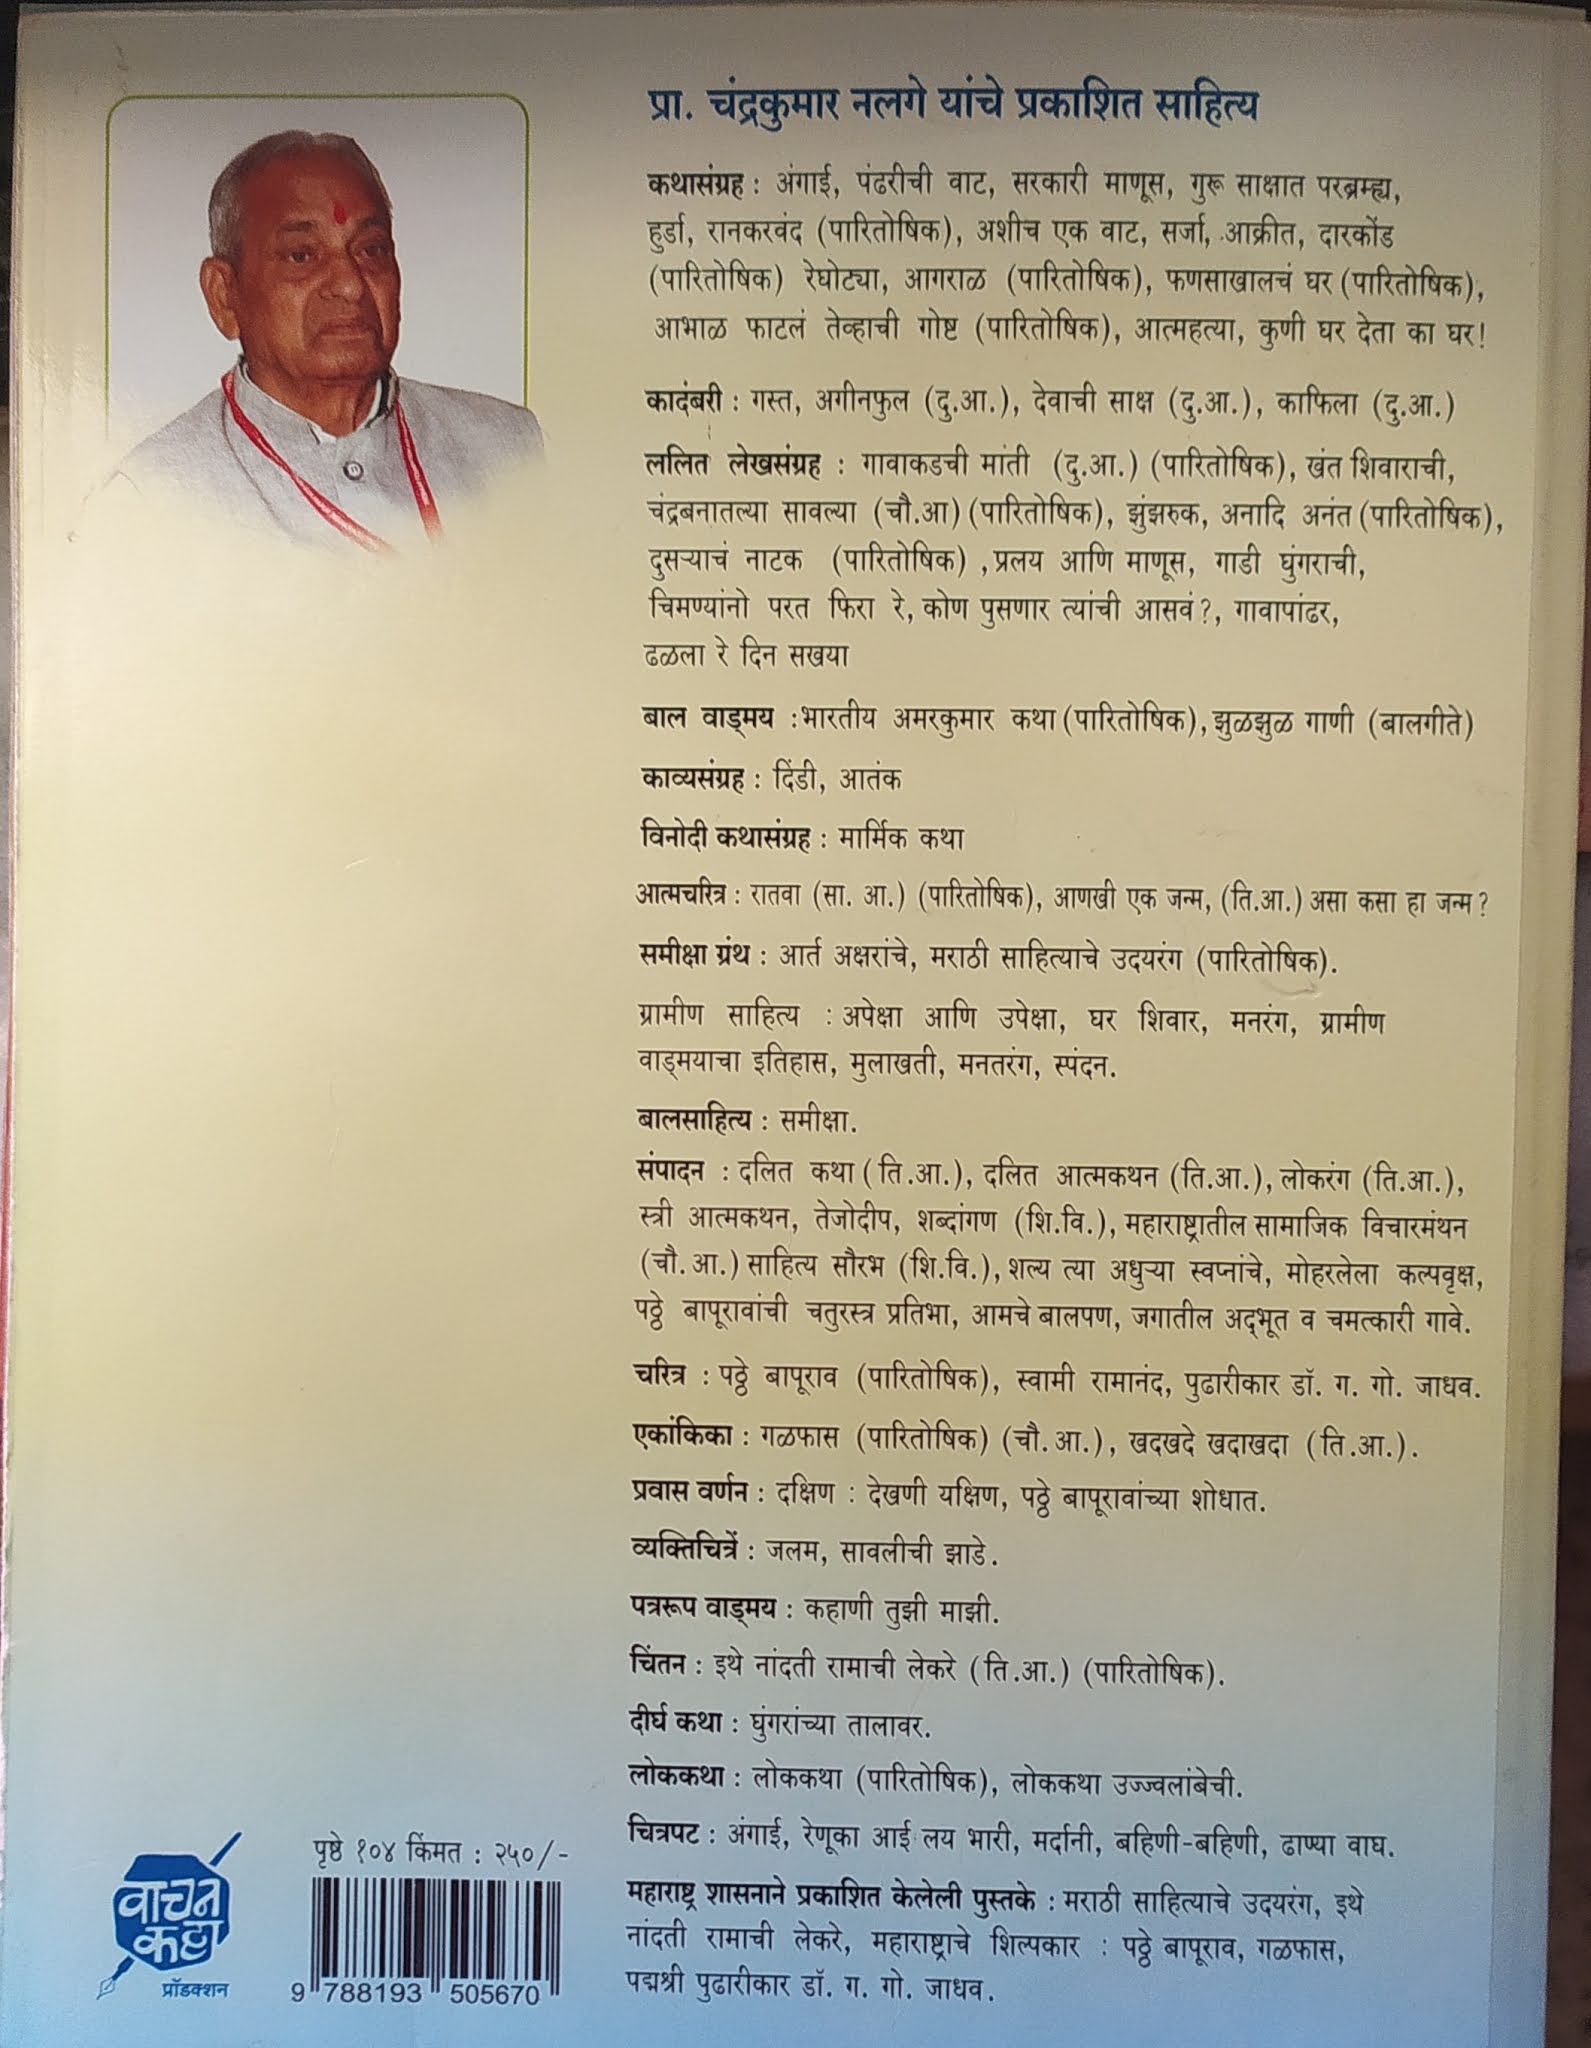 प्रा. चंद्रकुमार नलगे यांचे प्रकाशित साहित्य
कथासंग्रह : अंगाई, पंढरीची वाट, सरकारी माणूस, गुरू साक्षात परब्रम्ह्य,
हुर्डा, रानकरवंद (पारितोषिक), अशीच एक वाट, सर्जा, आक्रीत, दारकोंड
(पारितोषिक) रेघोट्या, आगराळ (पारितोषिक), फणसाखालचं घर (पारितोषिक),
आभाळ फाटलं तेव्हाची गोष्ट (पारितोषिक), आत्महत्या, कुणी घर देता का घर!
कादंबरी : गस्त, अगीनफुल (दु.आ.), देवाची साक्ष (दु.आ.), काफिला (दु.आ.)
ललित लेखसंग्रह : गावाकडची मांती (दु.आ.) (पारितोषिक), खंत शिवाराची,
चंद्रबनातल्या सावल्या (चौ.आ) (पारितोषिक), झुंझरुक, अनादि अनंत (पारितोषिक),
दुसऱ्याचं नाटक (पारितोषिक) , प्रलय आणि माणूस, गाडी घुंगराची,
चिमण्यांनो परत फिरा रे, कोण पुसणार त्यांची आसवं?, गावापांढर,
ढळला रे दिन सखया
बाल वाड्मय : भारतीय अमरकुमार कथा (पारितोषिक), झुळझुळ गाणी (बालगीते)
काव्यसंग्रह : दिंडी, आतंक
विनोदी कथासंग्रह : मार्मिक कथा
आत्मचरित्र : रातवा (सा. आ.) (पारितोषिक), आणखी एक जन्म, (ति.आ.) असा कसा हा जन्म?
समीक्षा ग्रंथ : आर्त अक्षरांचे, मराठी साहित्याचे उदयरंग (पारितोषिक).
ग्रामीण साहित्य : अपेक्षा आणि उपेक्षा, घर शिवार, मनरंग, ग्रामीण
वाड्मयाचा इतिहास, मुलाखती, मनतरंग, स्पंदन.
बालसाहित्य : समीक्षा.
संपादन : दलित कथा (ति.आ.), दलित आत्मकथन (ति.आ.), लोकरंग (ति.आ.),
स्त्री आत्मकथन, तेजोदीप, शब्दांगण (शि.वि.), महाराष्ट्रातील सामाजिक विचारमंथन
(चौ.आ.) साहित्य सौरभ (शि.वि.), शल्य त्या अधुऱ्या स्वप्नांचे, मोहरलेला कल्पवृक्ष,
पठ्ठे बापूरावांची चतुरस्त्र प्रतिभा, आमचे बालपण, जगातील अद्‌भूत व चमत्कारी गावे.
चरित्र : पठ्ठे बापूराव (पारितोषिक), स्वामी रामानंद, पुढारीकार डॉ. ग. गो. जाधव.
एकांकिका : गळफास (पारितोषिक) (चौ.आ.), खदखदे खदाखदा (ति.आ.).
प्रवास वर्णन : दक्षिण : देखणी यक्षिण, पठ्ठे बापूरावांच्या शोधात.
व्यक्तिचित्रें : जलम, सावलीची झाडे.
पत्ररूप वाड्मय : कहाणी तुझी माझी.
चिंतन : इथे नांदती रामाची लेकरे (ति.आ.) (पारितोषिक).
दीर्घ कथा : घुंगरांच्या तालावर.
लोककथा : लोककथा (पारितोषिक), लोककथा उज्ज्वलांबेची.
चित्रपट : अंगाई, रेणूका आई लय भारी, मर्दानी, बहिणी-बहिणी, ढाण्या वाघ.
महाराष्ट्र शासनाने प्रकाशित केलेली पुस्तके : मराठी साहित्याचे उदयरंग, इथे
नांदती रामाची लेकरे, महाराष्ट्राचे शिल्पकार : पठ्ठे बापूराव, गळफास,
पद्मश्री पुढारीकार डॉ. ग. गो. जाधव.
पृष्ठे १०४ किंमत : २५०/-
9 788193 505670
वाचन
कट्टा
प्रॉडक्शन